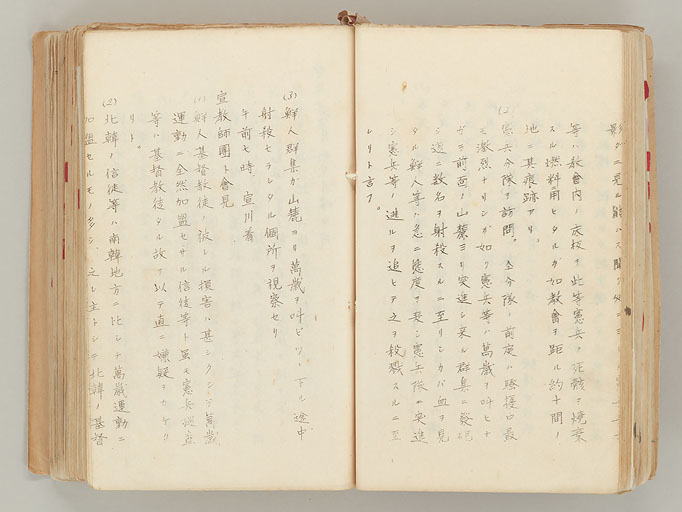 等ハ教會內ノ床板ヲ此等憲兵ノ死骸ニ燒棄
スル燃料ニ用ヒタルガ如教會ヲ距ル約十間ノ
地ニ其痕跡アリ、
(2)憲兵分隊ヲ訪問。全分隊ハ前度ノ騷擾中最
モ激烈ナリシガ如ク憲兵等ハ萬歲ヲ叫ヒナ
ガラ前面ノ山麓ヨリ突進シ來ル群集ニ發砲
シ遂ニ數名ヲ射殺スルニ至リシカバ血ヲ見
タル鮮人等ハ急ニ態度ヲ變シ憲兵隊ニ突進
シ憲兵等ノ逃ルヲ追ヒテ之ヲ殺戮スルニ至
レリト言フ。
(3)鮮人群集ガ山麓ヨリ萬歲ヲ叫ビツヽ下ル途中
射殺セラレタル個所ヲ視察セリ
午前七時、宣川着
宣教師團ト會見
(1)鮮人基督教徒ノ被レル損害ハ甚シクシテ萬歲
運動ニ全然加盟セサル信徒等ト雖モ憲兵巡査
等ハ基督教徒タル故ヲ以テ直ニ嫌疑ヲカケ
リト。
(2)北韓ノ信徒等ハ南韓地方ニ比シテ萬歲運動ニ
加盟セルモノ多シ、之レ主トシテ北韓ノ基督